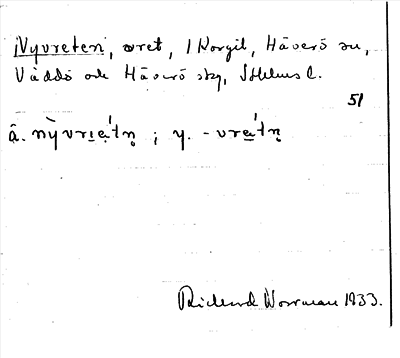 Nyvreten, vret, 1 Norgil, Häverö sn,
Väddö och Häverö skg, Sthlms l.
51
ä. nỳvri̱ạ́tn̥ ; y. -vrạ́tn̥
Rickard Worrman 1933.